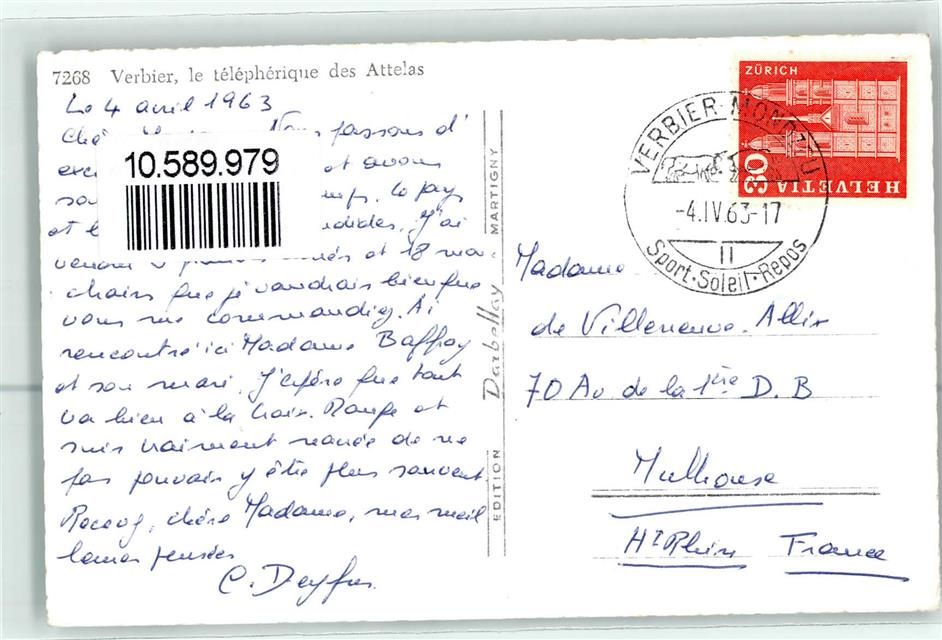 7268 Verbier, le téléphérique des Attelas
Le 4 avril 1963
Nous passons d'
et avons
10.589.979
le pays
J'ai
et 18
que je voudrais bien que
vous me commandiez. Ai
rencontré ici Madame Baffray
et son mari. J'espère que tout
va bien à la Croix-Rouge et
suis vraiment navrée de ne
pas pouvoir y être plus souvent.
Recevez, chère Madame, mes meil
leures pensées
C. Dreyfus
EDITION Darbellay MARTIGNY
ZÜRICH
HELVETIA
30
VERBIER-MONDZEU
-4.IV.63-17
II
Sport·Soleil·Repos
Madame
de Villeneuve-Allix
70 Av de la 1ère D. B
Mulhouse
Ht Rhin France